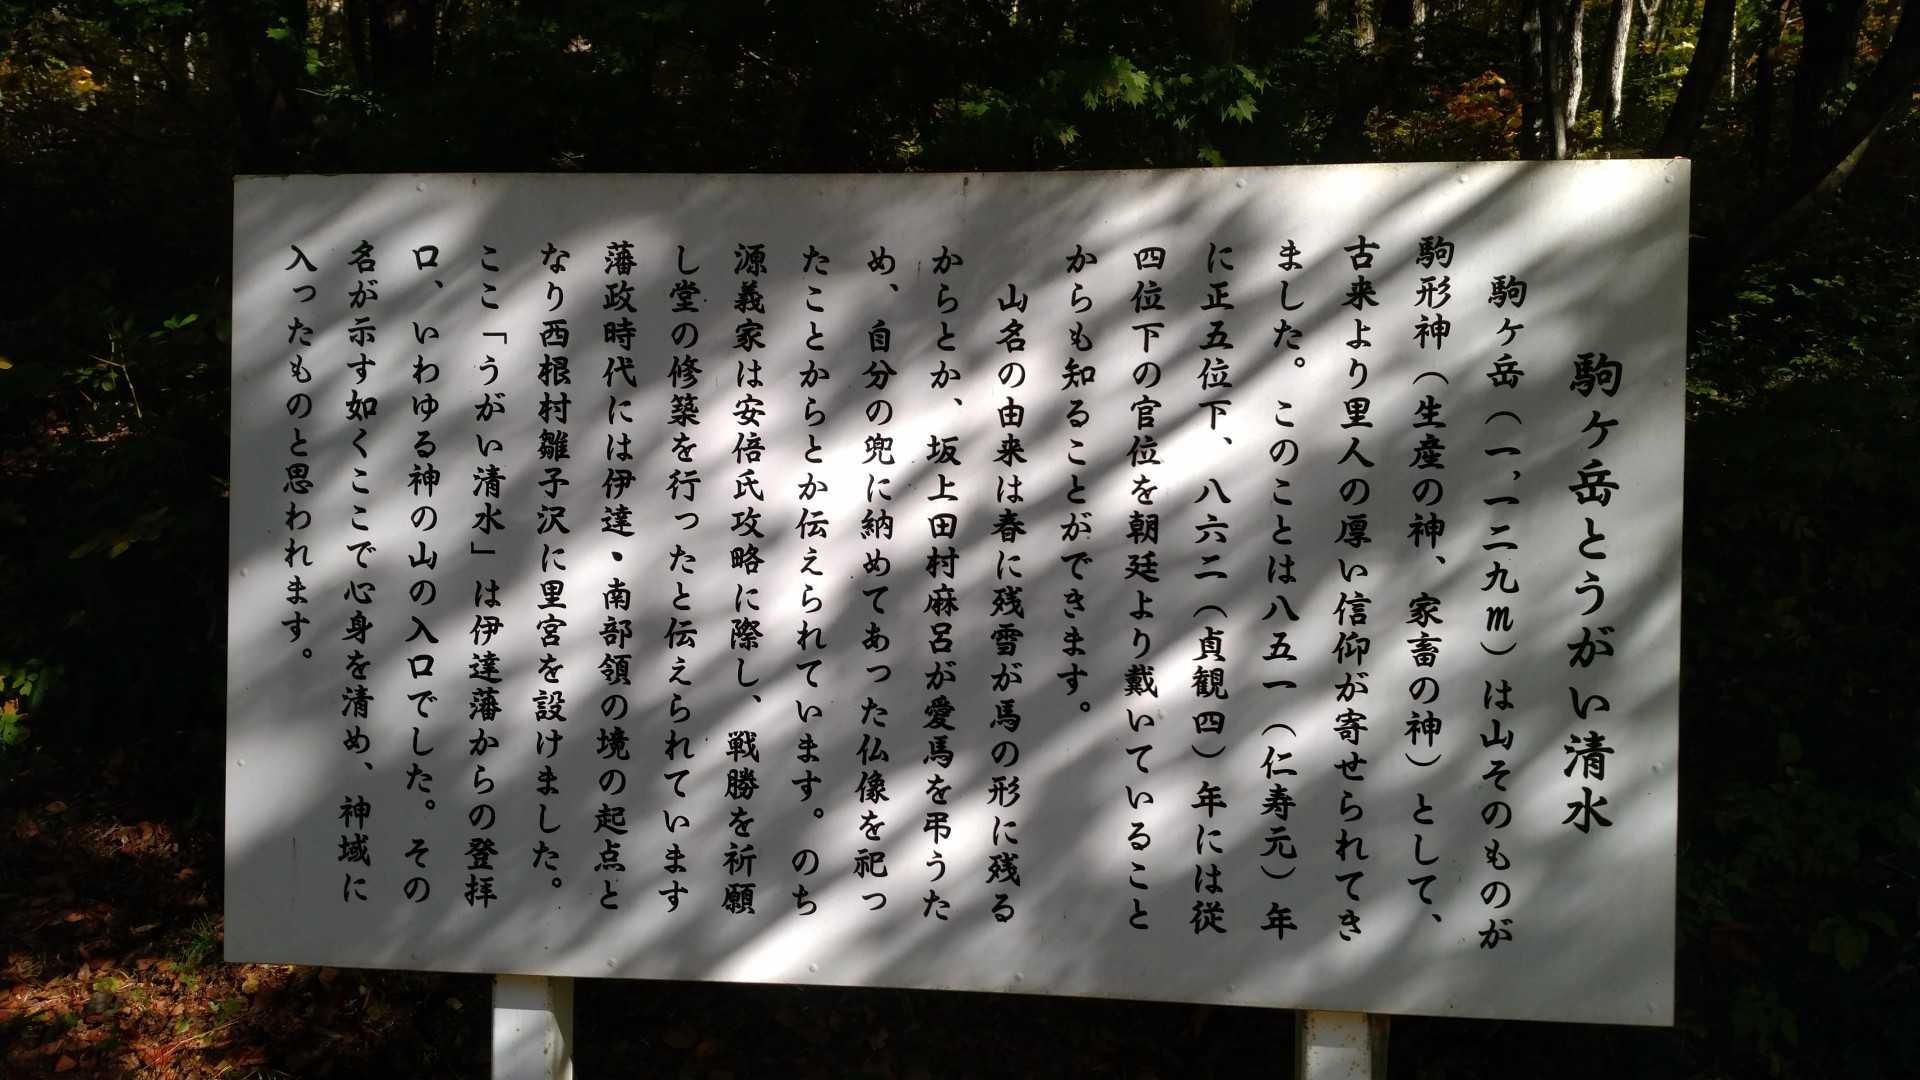 駒ヶ岳とうがい清水
駒ヶ岳（一、一二九m）は山そのものが
駒形神（生産の神、家畜の神）として、
古来より里人の厚い信仰が寄せられてき
ました。このことは八五一（仁寿元）年
に正五位下、八六二（貞観四）年には従
四位下の官位を朝廷より戴いていること
からも知ることができます。
山名の由来は春に残雪が馬の形に残る
からとか、坂上田村麻呂が愛馬を弔うた
め、自分の兜に納めてあった仏像を祀っ
たことからとか伝えられています。のち
源義家は安倍氏攻略に際し、戦勝を祈願
し堂の修築を行ったと伝えられています
藩政時代には伊達・南部領の境の起点と
なり西根村雛子沢に里宮を設けました。
ここ「うがい清水」は伊達藩からの登拝
口、いわゆる神の山の入口でした。その
名が示す如くここで心身を清め、神域に
入ったものと思われます。